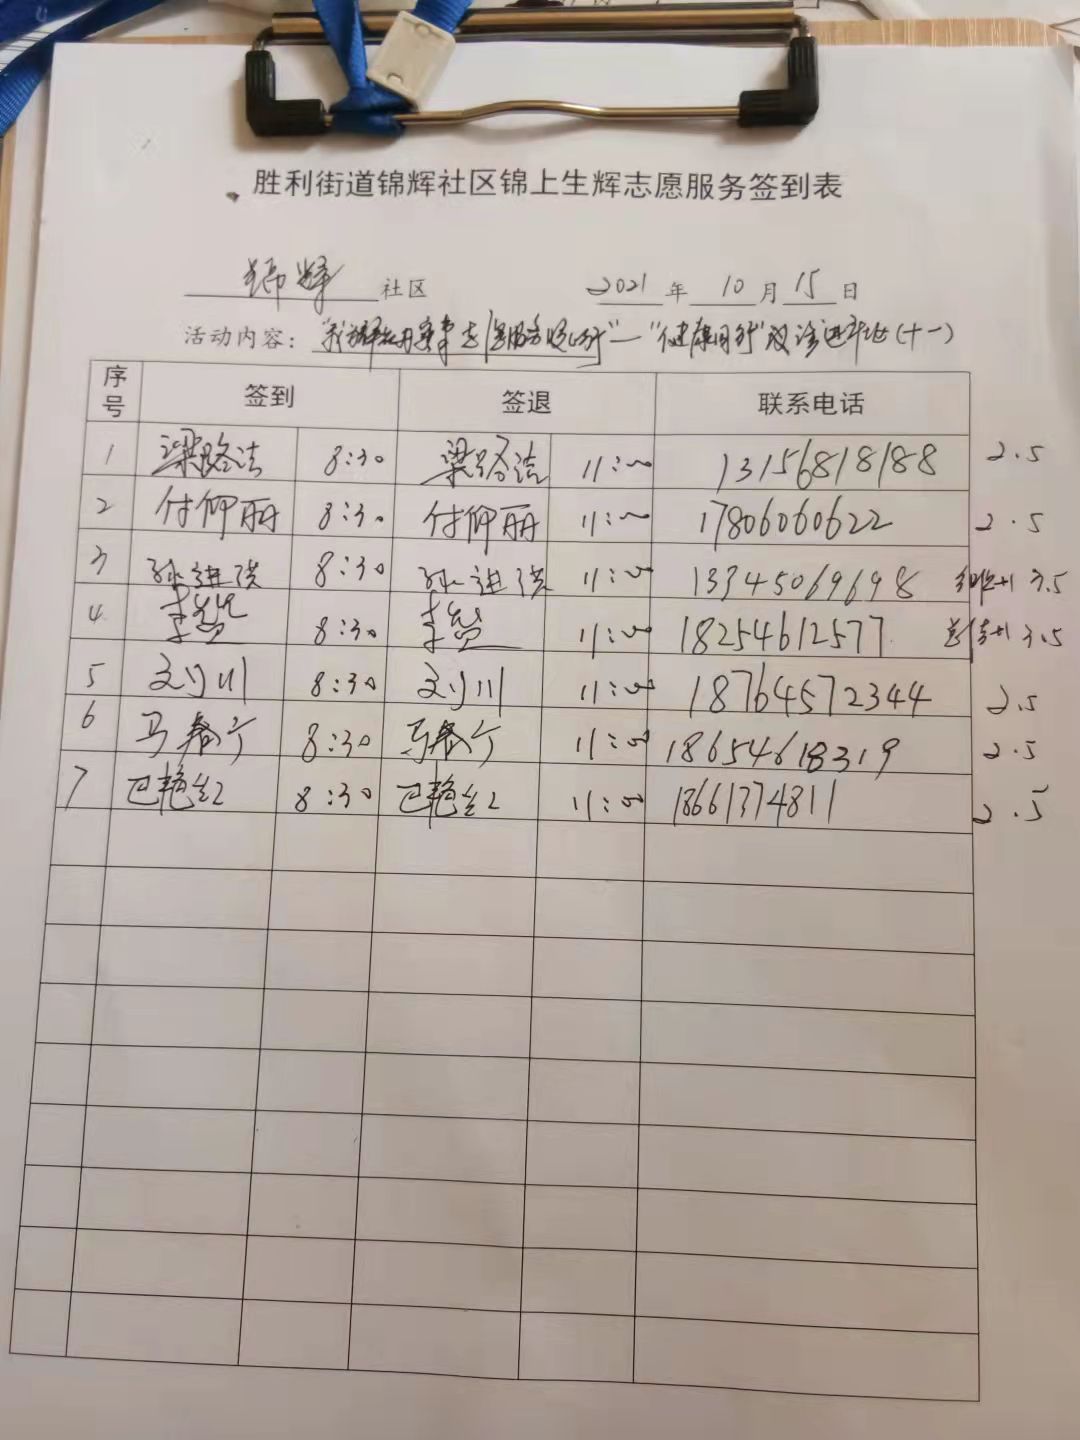 胜利街道锦辉社区锦上生辉志愿服务签到表
锦辉社区 2021年10月15日
活动内容:"我为群众办实事 志愿服务暖心行"—"健康同行"义诊进社区(十一)
序号 签到 签退 联系电话
1 梁路洁 8:30 梁路洁 11:00 13156818188 2.5
2 付仰丽 8:30 付仰丽 11:00 17806060622 2.5
3 孙进洪 8:30 孙进洪 11:00 13345069698 +1 3.5
4 李 8:30 李 11:00 18254612577 +1 3.5
5 刘川 8:30 刘川 11:00 18764572344 2.5
6 马春宁 8:30 马春宁 11:00 18654618319 2.5
7 巴艳红 8:30 巴艳红 11:00 18661374811 2.5